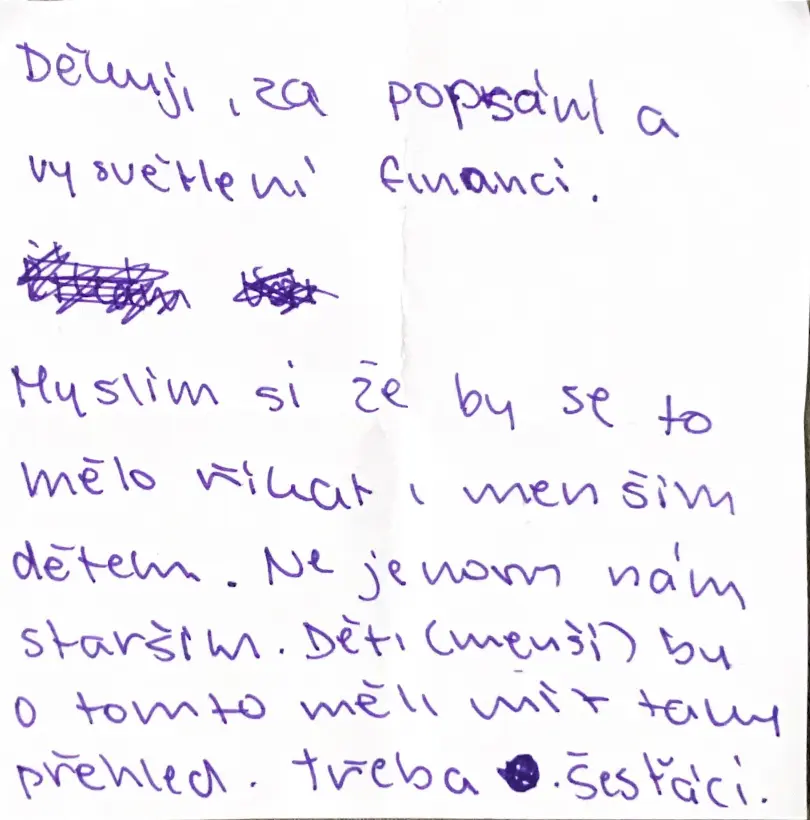 Děkuji, za popsání a
vysvětlení financi.
Myslim si že by se to
mělo řikat i menšim
dětem. Ne jenom nám
staršim. Děti (menši) by
o tomto měli mit taky
přehled. třeba šesťáci.